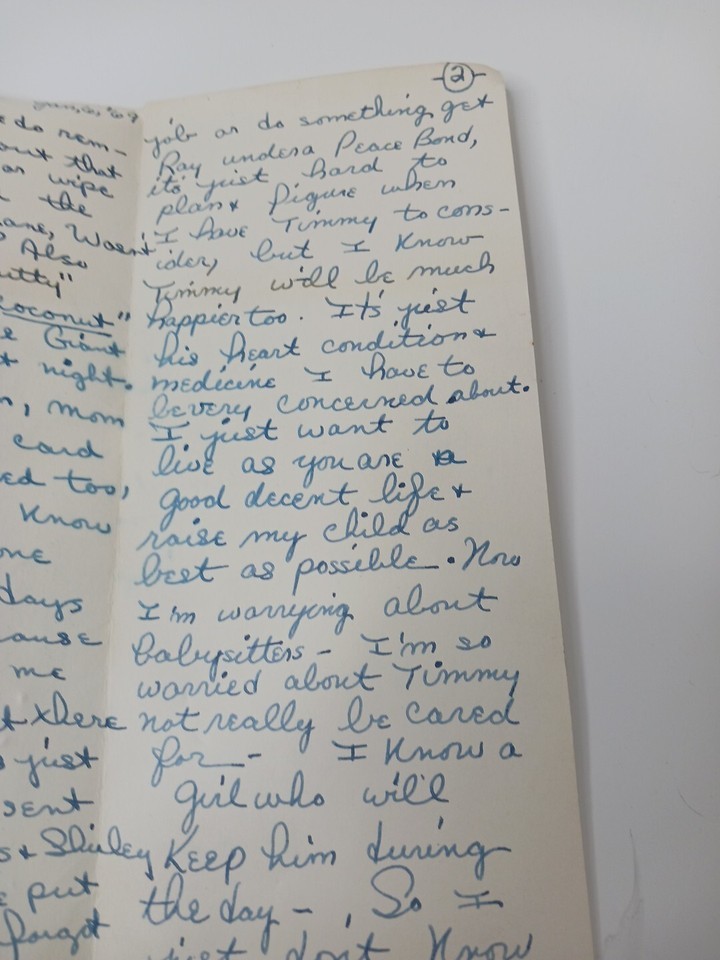 e do rem-
out that
or wipe
the
Also
utty"
oconut"
e Giant
t night.
, mom
card
ed too,
Know
one
days
ause
me
t there
just
sent
s & Shirley
e put
forgot
-2-
job or do something, get
Ray under a Peace Bond,
its just hard to
plan & figure when
I have Timmy to cons-
ider, but I Know
Timmy will be much
happier too. It's just
his heart condition &
medicine I have to
be very concerned about.
I just want to
live as you are a
good decent life &
raise my child as
best as possible. Now
I'm worrying about
babysitters - I'm so
worried about Timmy
not really be cared
for - I Know a
girl who will
Keep him during
the day - , So I
just don't Know